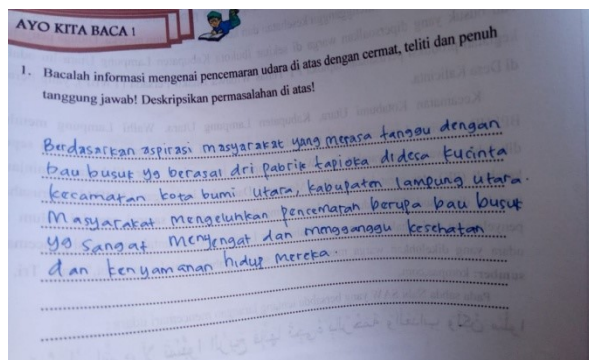 AYO KITA BACA !
1. Bacalah informasi mengenai pencemaran udara di atas dengan cermat, teliti dan penuh
tanggung jawab! Deskripsikan permasalahan di atas!
Berdasarkan aspirasi masyarakat yang merasa tanggu dengan
bau busuk yg berasal dri pabrik tapioka didesa kucinta
kecamatan kota bumi utara, kabupaten lampung utara.
Masyarakat mengeluhkan pencemaran berupa bau busuk
yg sangat menyengat dan mmgganggu kesehatan
dan kenyamanan hidup mereka.